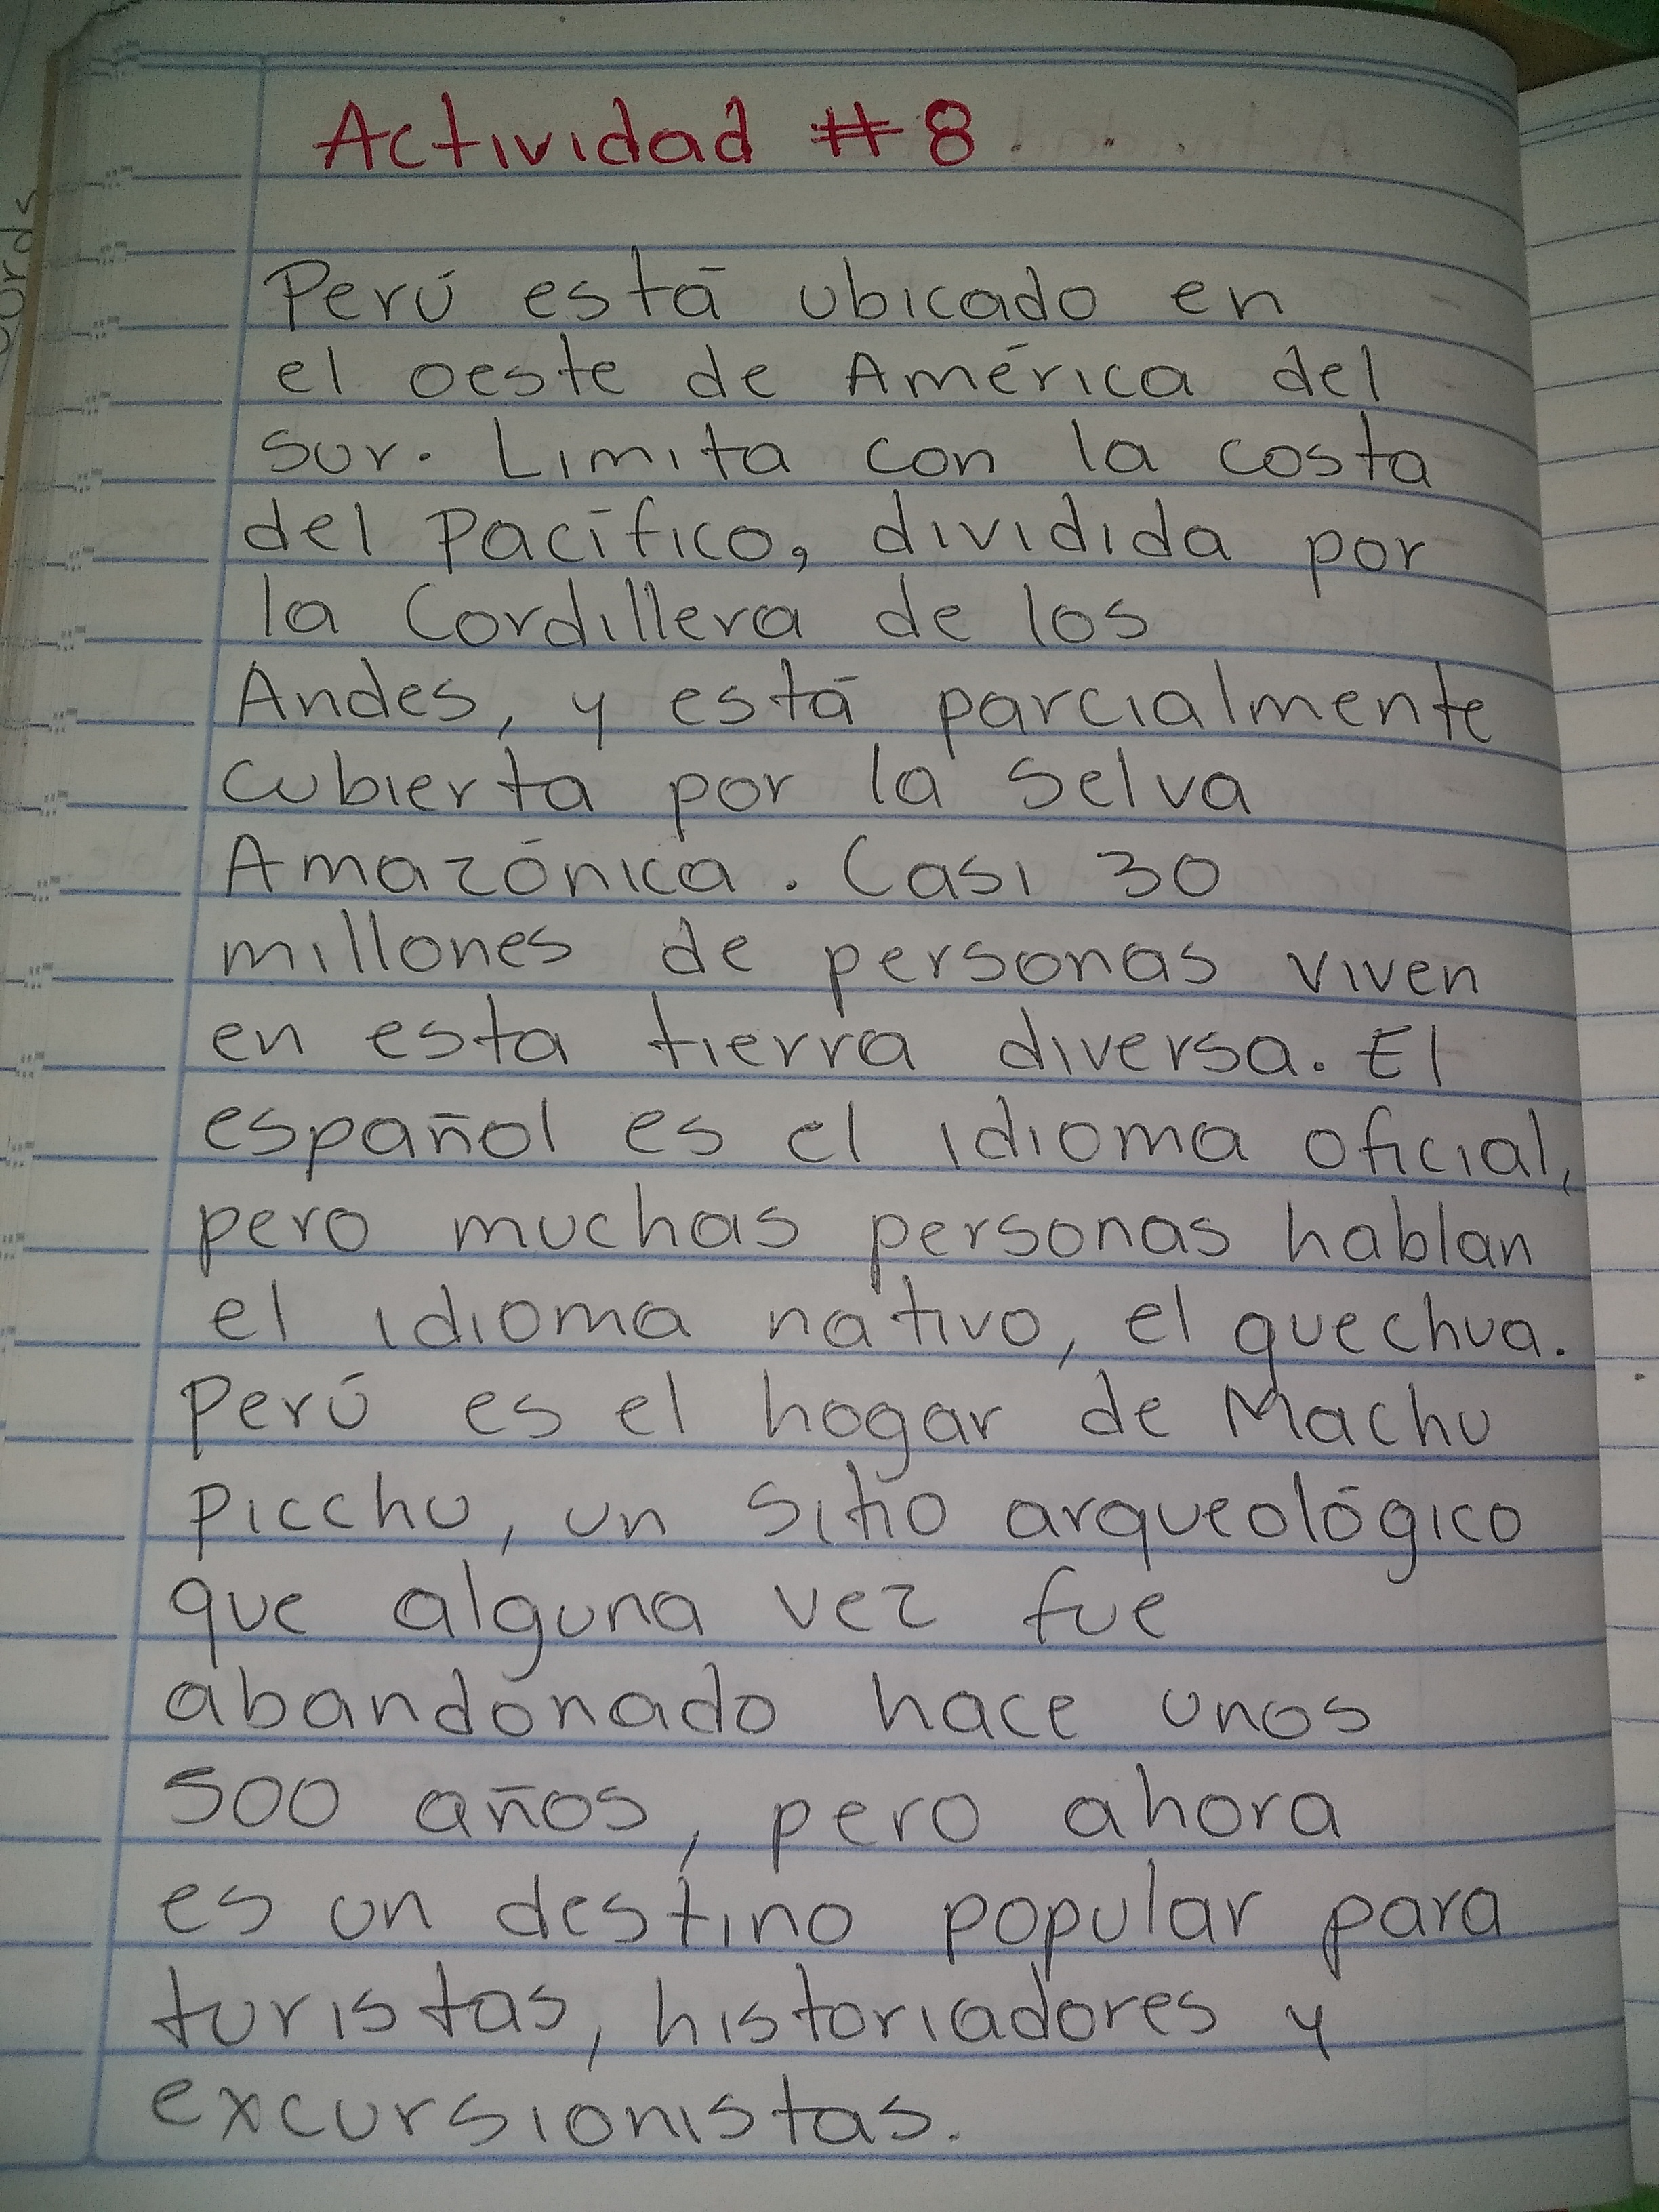 Actividad #8
Perú está ubicado en
el oeste de América del
sur. Limita con la costa
del Pacífico, dividida por
la Cordillera de los
Andes, y está parcialmente
cubierta por la selva
Amazónica. Casi 30
millones de personas viven
en esta tierra diversa. El
español es el idioma oficial,
pero muchas personas hablan
el idioma nativo, el quechua.
Perú es el hogar de Machu
Picchu, un sitio arqueológico
que alguna vez fue
abandónado hace unos
500 años, pero ahora
es un destino popular para
turistas, historiadores y
excursionistas.